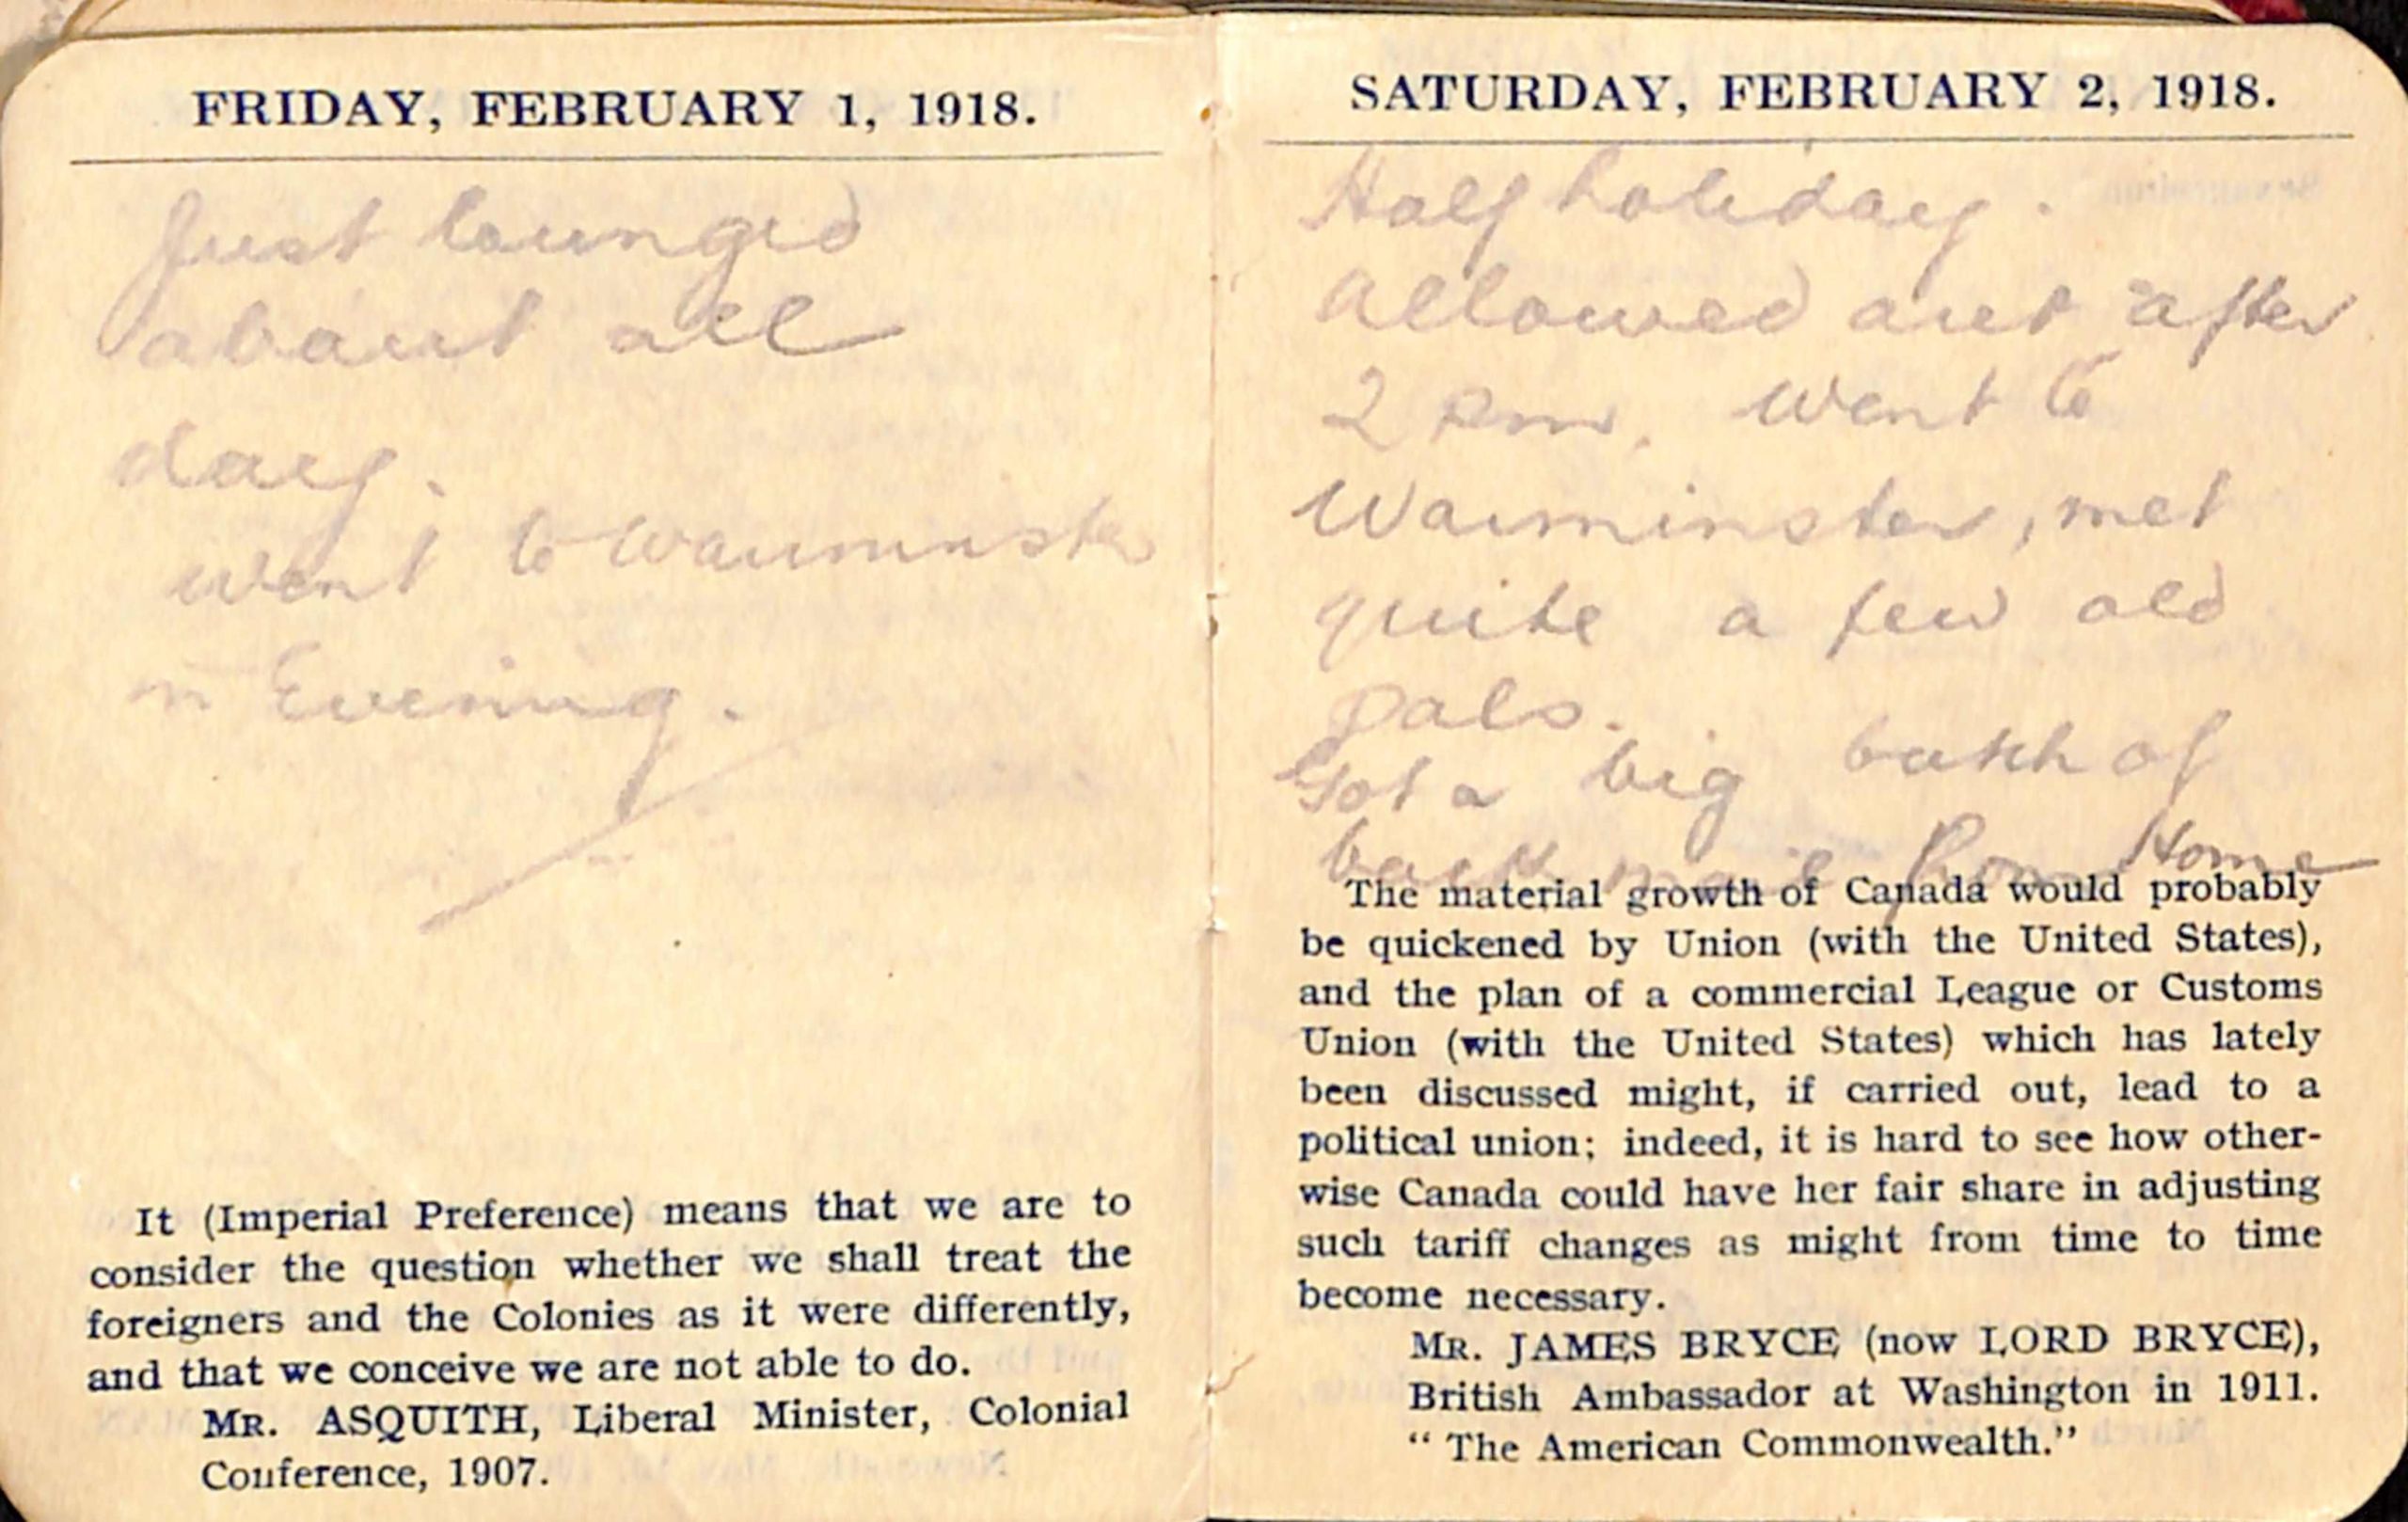 FRIDAY, FEBRUARY 1, 1918.
Just lounged
about all
day.
went to Warminster
in Evening.
It (Imperial Preference) means that we are to
consider the question whether we shall treat the
foreigners and the Colonies as it were differently,
and that we conceive we are not able to do.
MR. ASQUITH, Liberal Minister, Colonial
Conference, 1907.
SATURDAY, FEBRUARY 2, 1918.
Half holiday.
allowed out after
2 pm. Went to
Warminster, met
quite a few old
pals.
Got a big batch of
back mail from Home
The material growth of Canada would probably
be quickened by Union (with the United States),
and the plan of a commercial League or Customs
Union (with the United States) which has lately
been discussed might, if carried out, lead to a
political union; indeed, it is hard to see how other-
wise Canada could have her fair share in adjusting
such tariff changes as might from time to time
become necessary.
MR. JAMES BRYCE (now LORD BRYCE),
British Ambassador at Washington in 1911.
"The American Commonwealth."